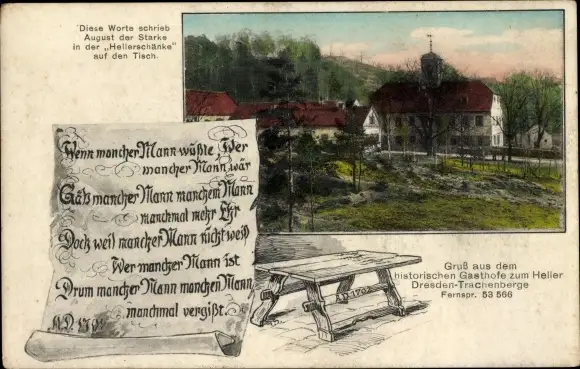 Diese Worte schrieb
August der Starke
in der „Hellerschänke"
auf den Tisch.
Wenn mancher Mann wüßte, Wer
mancher Mann wär
Gäb mancher Mann manchem Mann
manchmal mehr Ehr
Doch weil mancher Mann nicht weiß
Wer mancher Mann ist
Drum mancher Mann manchen Mann
manchmal vergißt.
1702
Gruß aus dem
historischen Gasthofe zum Heller
Dresden-Trachenberge
Fernspr. 53 566